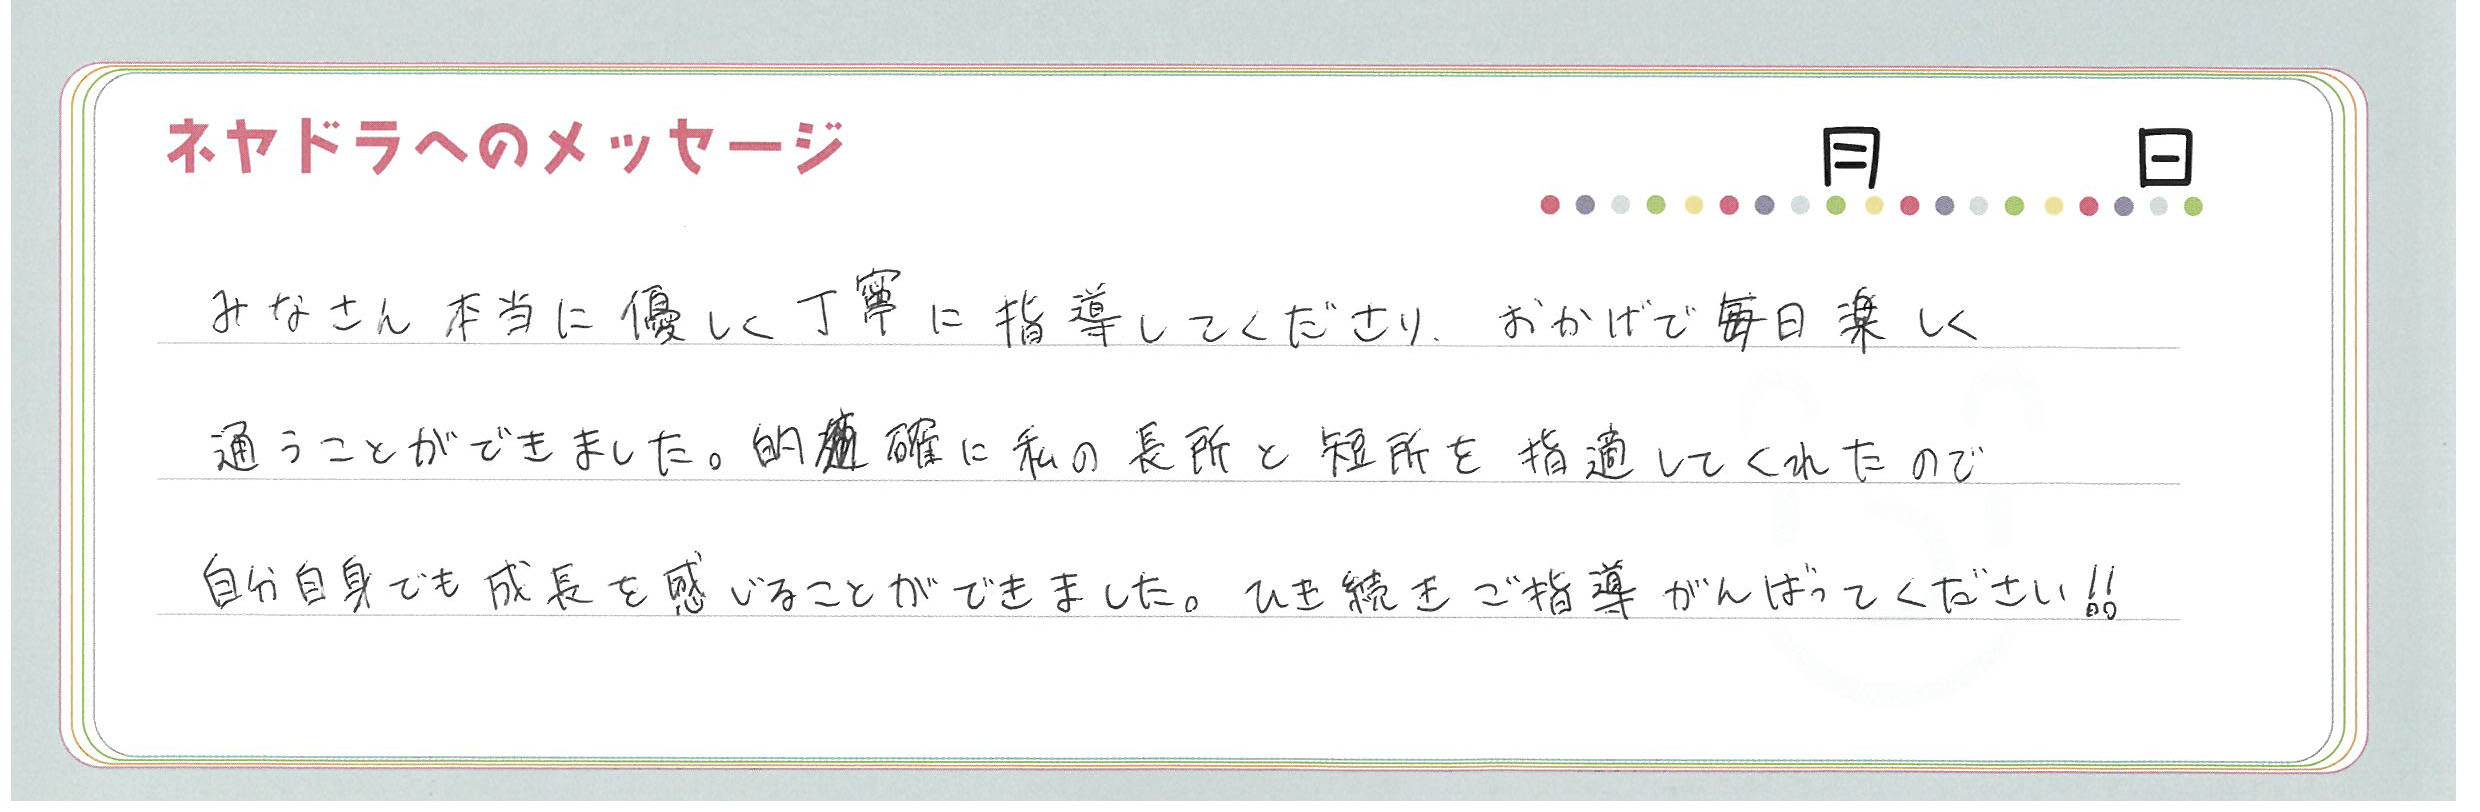 ネヤドラへのメッセージ
月 日
みなさん本当に優しく丁寧に指導してくださり、おかげで毎日楽しく
通うことができました。的確に私の長所と短所を指適してくれたので
自分自身でも成長を感じることができました。ひき続きご指導がんばってください!!